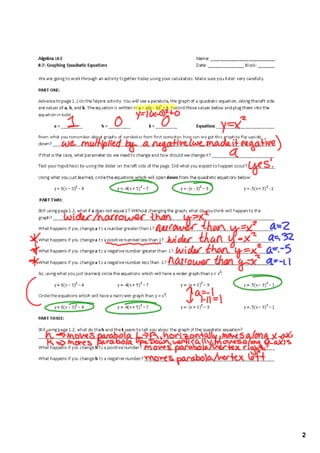 Algebra 1A3 Name:
8.2: Graphing Quadratic Equations Date: Block:
We are going to walk through an activity together today using your calculators. Make sure you listen very carefully.
PART ONE:
Advance to page 1.2 on the Nspire activity. You will see a parabola, the graph of a quadratic equation. Along the left side
are values of a, h, and k. The equation is written y = a(x - h)² + k. Record those values below and plug them into the
equation in bold. y=1(x-0)²+0
a = 1 h = 0 k = 0 Equation: y=x²
From what you remember about graphs of parabolas from first semester, how can we get this graph to flip upside
down? we multiplied by a negative (we made it negative)
If that is the case, what parameter do we need to change and how should we change it? a
Test your hypothesis by using the slider on the left side of the page. Did what you expected to happen occur? yes!
Using what you just learned, circle the equations which will open down from the quadratic equations below:
y = 3(x - 3)² - 4 y = -4(x + 5)² - 7 y = -(x - 3)² - 9 y = .5(x - 3)² -1
PART TWO:
Still using page 1.2, what if a does not equal 1? Without changing the graph, what do you think will happen to the
graph? wider/narrower than y=x²
What happens if you change a to a number greater than 1? narrower than y=x² a=2
What happens if you change a to a positive number less than 1? wider than y=x² a=.32
What happens if you change a to a negative number greater than -1? wider than y=x² a=-.5
What happens if you change a to a negative number less than -1? narrower than y=x² a=-1.1
So, using what you just learned, circle the equations which will have a wider graph than y = x²:
y = 3(x - 3)² - 4 y = -4(x + 5)² - 7 y = -(x - 3)² - 9 y = .5(x - 3)² -1
a=-1
|-1|=1
Circle the equations which will have a narrower graph than y = x²
y = 3(x - 3)² - 4 y = -4(x + 5)² - 7 y = -(x - 3)² - 9 y = .5(x - 3)² -1
PART THREE:
Still using page 1.2, what do the h and the k seem to tell you about the graph of the quadratic equation?
h → moves parabola L→R, horizontally, moves along x-axis
k → moves parabola up & down, vertically (moves along y-axis)
What happens if you change h to a positive number? moves parabola/vertex right
What happens if you change h to a negative number? moves parabola/vertex left
2